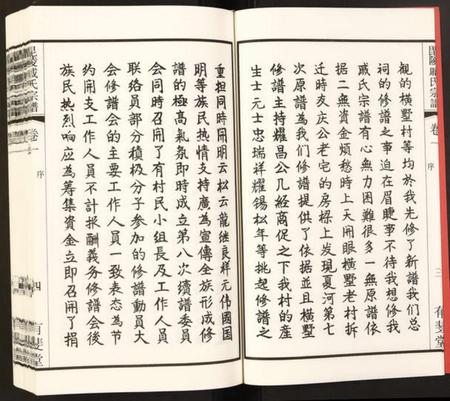 毘陵戚氏宗譜
卷一
序
三
有斐堂
觀的橫墅村等均於我先修了新譜我们总
祠的修譜之事迫在眉睫事不待我想修我
戚氏宗譜有心無力困難很多一無原譜依
据二無資金煩愁時上天開眼橫墅老村拆
迁時友庆公老宅的房樑上发現夏河第七
次原譜為我們修譜提供了依据並且橫墅
修譜主持耀昌公几经商促之下我村的產
生士元士忠瑞祥耀锡松年等挑起修譜之
重担同時開明云松云龍继良祥元伟國国
明等族民热情支持廣為宣傳全族形成修
譜的極高氣氛即時成立第八次續譜委員
会同時召開了有村民小组長及工作人員
联络員部分積极分子参加的修譜動員大
会修譜会的主要工作人員一致表态為节
约開支工作人員不計报酬義务修譜会後
族民热烈响应為筹集資金立即召開了捐
毘陵戚氏宗譜
卷一
序
四
有斐堂